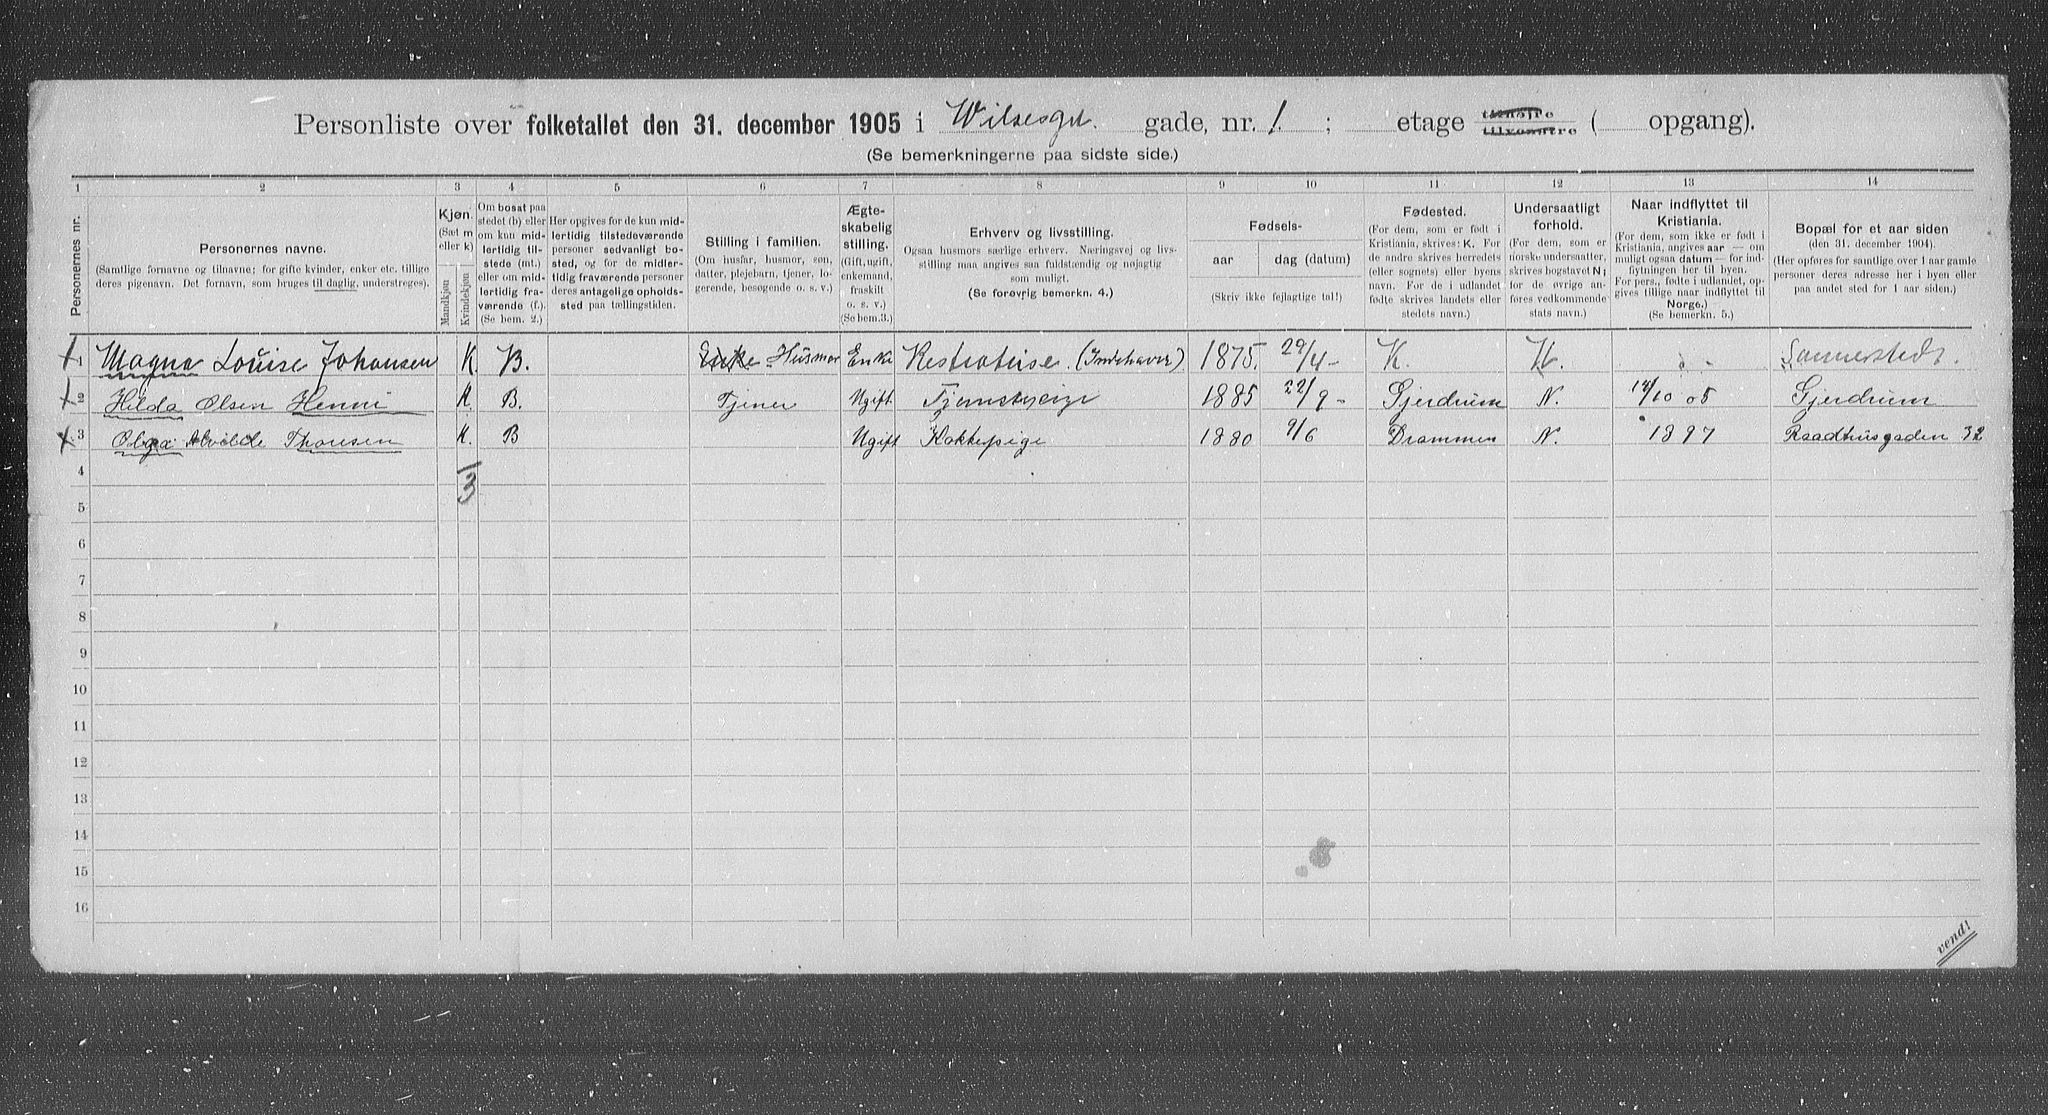 Personliste over folketallet den 31. december 1905 i Wilsesgd. gade, nr. 1. ; etage tilhøjre tilvenstre ( opgang).
(Se bemerkningerne paa sidste side.)
1 2 3 4 5 6 7 8 9 10 11 12 13 14
Personernes nr.
Personernes navne.
(Samtlige fornavne og tilnavne; for gifte kvinder, enker etc. tillige
deres pigenavn. Det fornavn, som bruges til daglig, understreges).
Kjøn.
(Sæt m
eller k)
Mandkjøn
Kvindekjøn
Om bosat paa
stedet (b) eller
om kun mid-
lertidig til-
stede (mt.)
eller om mid-
lertidig fra-
værende (f.).
(Se bem. 2.)
Her opgives for de kun mid-
lertidig tilstedeværende
personer sedvanligt bo-
sted, og for de midler-
tidig fraværende personer
deres antagelige opholds-
sted paa tællingstiden.
Stilling i familien.
(Om husfar, husmor, søn,
datter, plejebarn, tjener, lo-
gerende, besøgende o. s. v.)
Ægte-
skabelig
stilling.
(Gift, ugift,
enkemand,
fraskilt
o. s. v.)
(Se bem.3.)
Erhverv og livsstilling.
Ogsaa husmors særlige erhverv. Næringsvej og livs-
stilling maa angives saa fuldstændig og nøjagtig
som muligt.
(Se forøvrig bemerkn. 4.)
Fødsels-
aar dag (datum)
(Skriv ikke fejlagtige tal!)
Fødested.
(For dem, som er født i
Kristiania, skrives: K. For
de andre skrives herredets
(eller sognets) eller byens
navn. For de i udlandet
fødte skrives landets eller
stedets navn.)
Undersaatligt
forhold.
(For dem, som er
norske undersaatter,
skrives bogstavet N;
for de øvrige an-
føres vedkommende
stats navn.)
Naar indflyttet til
Kristiania.
(For dem, som ikke er født i
Kristiania, angives aar — om
muligt ogsaa datum — for ind-
flytningen her til byen.
For pers., fødte i udlandet, op-
gives tillige naar indflyttet til
Norge.)
(Se bemerkn. 5.)
Bopæl for et aar siden
(den 31. december 1904).
(Her opføres for samtlige over 1 aar gamle
personer deres adresse her i byen eller
paa andet sted for 1 aar siden.)
1 Magna Louise Johansen K. B. Enke Husmor Enke Restratrise (Indehaver) 1875. 29/4- K. N. Sannerstedt.
2 Hilda Olsen Henni K. B. Tjener Ugift. Tjenestpige 1885 22/9- Gjerdrum N. 14/10 05 Gjerdrum
3 Olga Alvilde Thorsen K. B Ugift Kokkepige 1880 9/6 Drammen N. 1897 Raadhusgaden 32
4
3
5
6
7
8
9
10
11
12
13
14
15
16
vend!